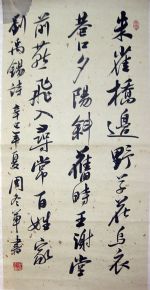 朱雀橋邊野草花烏衣
巷口夕陽斜舊時王謝堂
前燕飛入尋常百姓家
劉禹錫詩 辛巳年夏 周書